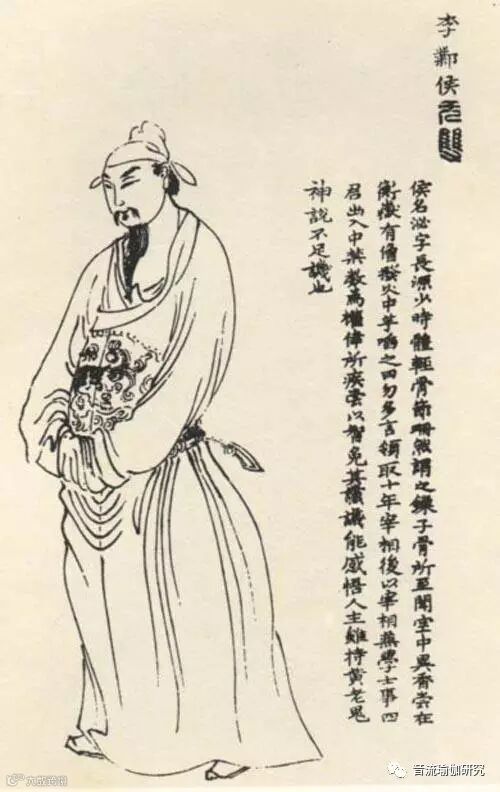 李鄴侯
侯名泌字長源少時體輕骨節珊然謂之鎖子骨所至閨堂中異香嘗在
衡嶽有僧撥火中芋啗之曰勿多言領取十年宰相後以宰相兼學士事四
召出入中禁數為權倖所疾常以智免其讜議能感悟人主雖持黄老鬼
神說不足譏也
音流瑜伽研究